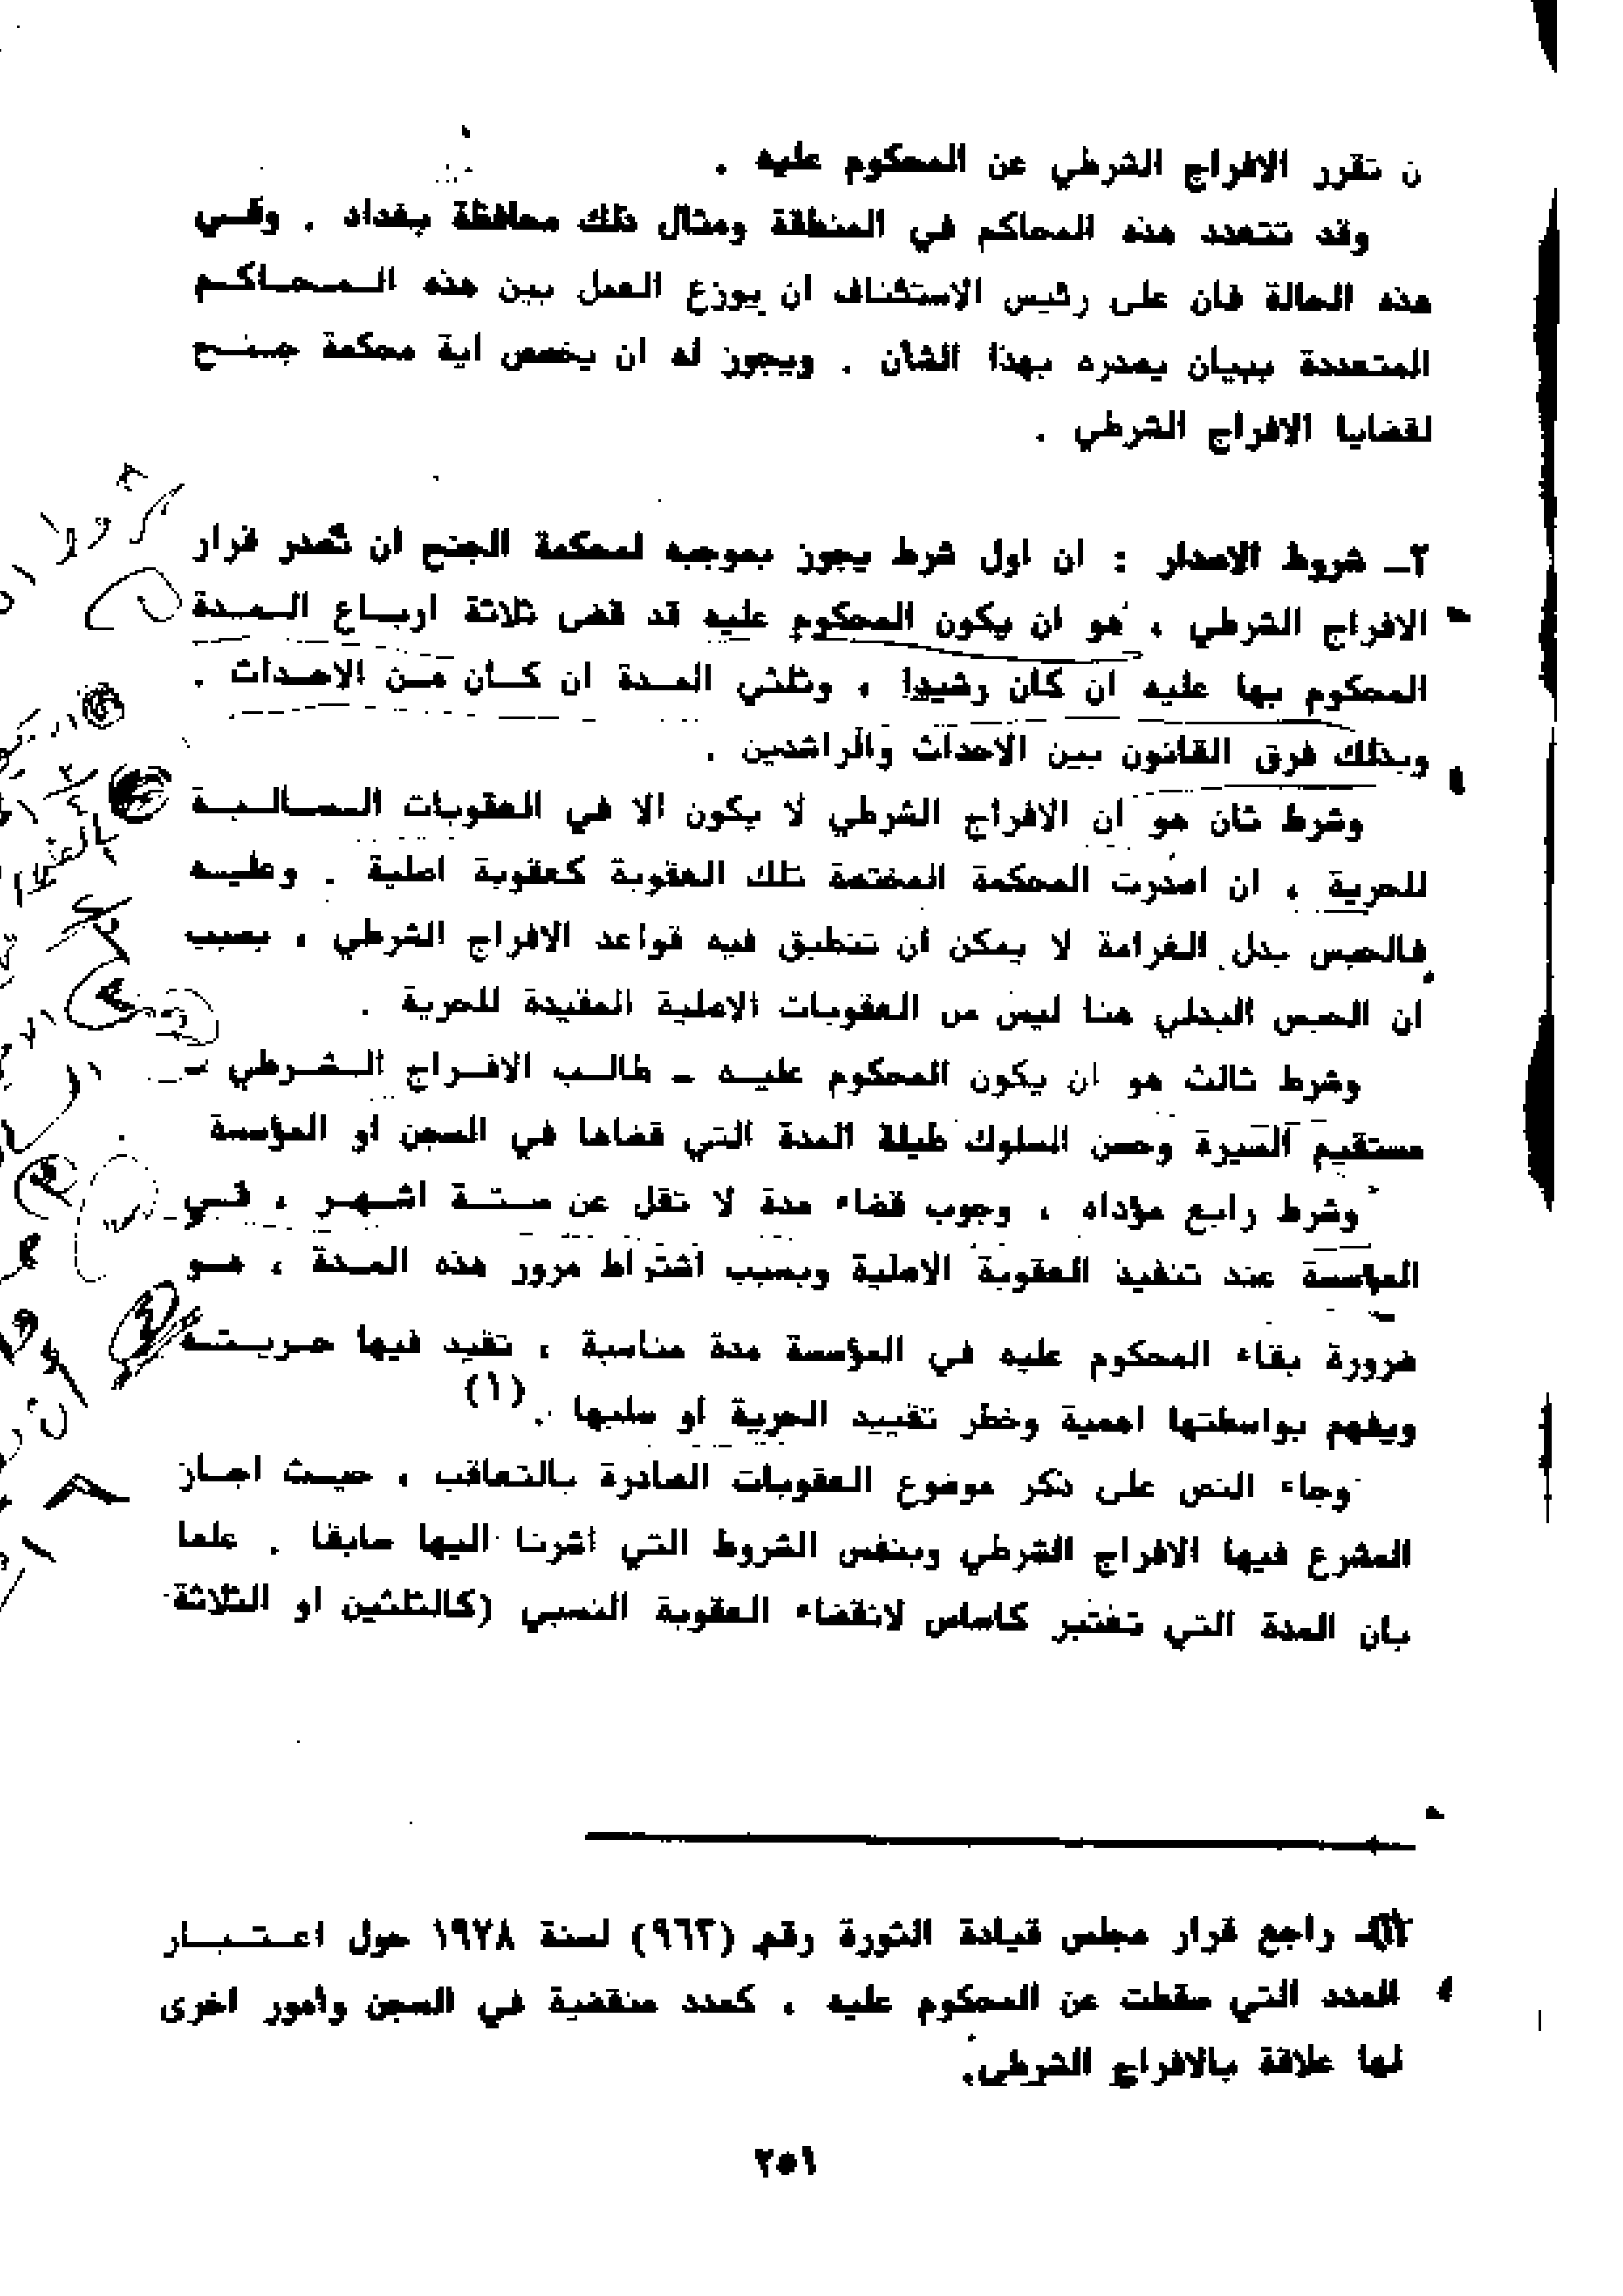 ن تقرر الافراج الشرطي عن المحكوم عليه .
وقد تتعدد هذه المحاكم في المنطقة ومثال ذلك محافظة بغداد . وفـي
هذه الحالة فان على رئيس الاستئناف ان يوزع العمل بين هذه الـمـحـاكـم
المتعددة ببيان يصدره بهذا الشأن . ويجوز له ان يخصص اية محكمة جـنـح
لقضايا الافراج الشرطي .
٢ـ شروط الاصدار : ان اول شرط يجوز بموجبه لمحكمة الجنح ان تصدر قرار
الافراج الشرطي ، هو ان يكون المحكوم عليه قد قضى ثلاثة اربـاع الـمـدة
المحكوم بها عليه ان كان رشيدا ، وثلثي المـدة ان كـان مـن الاحـداث .
وبذلك فرق القانون بين الاحداث والراشدين .
وشرط ثان هو ان الافراج الشرطي لا يكون الا في العقوبات الـسـالـبـة
للحرية ، ان اصدرت المحكمة المختصة تلك العقوبة كعقوبة اصلية . وعليـه
فالحبس بدل الغرامة لا يمكن ان تنطبق فيه قواعد الافراج الشرطي ، بسبب
ان الحبس البدلي هنا ليس من العقوبات الاصلية المقيدة للحرية .
وشرط ثالث هو ان يكون المحكوم عليـه ـ طالـب الافـراج الـشـرطي ـ
مستقيم السيرة وحسن السلوك طيلة المدة التي قضاها في السجن او المؤسسة
وشرط رابع مؤداه ، وجوب قضاء مدة لا تقل عن سـتـة اشـهـر ، فـي
المؤسسة عند تنفيذ العقوبة الاصلية وبسبب اشتراط مرور هذه المـدة ، هـو
ضرورة بقاء المحكوم عليه في المؤسسة مدة مناسبة ، تقيد فيها حـريـتـه
ويفهم بواسطتها اهمية وخطر تقييد الحرية او سلبها .(١)
وجاء النص على ذكر موضوع العقوبات الصادرة بالتعاقب ، حيـث اجـاز
المشرع فيها الافراج الشرطي وبنفس الشروط التي اشرنا اليها سابقا . علما
بان المدة التي تعتبر كاساس لانقضاء العقوبة النسبي (كالثلثين او الثلاثة
راجع قرار مجلس قيادة الثورة رقم (٩٦٣) لسنة ١٩٧٨ حول اعـتـبـار
المدد التي سقطت عن المحكوم عليه ، كمدد منقضية في السجن وامور اخرى
لها علاقة بالافراج الشرطي.
٢٥١